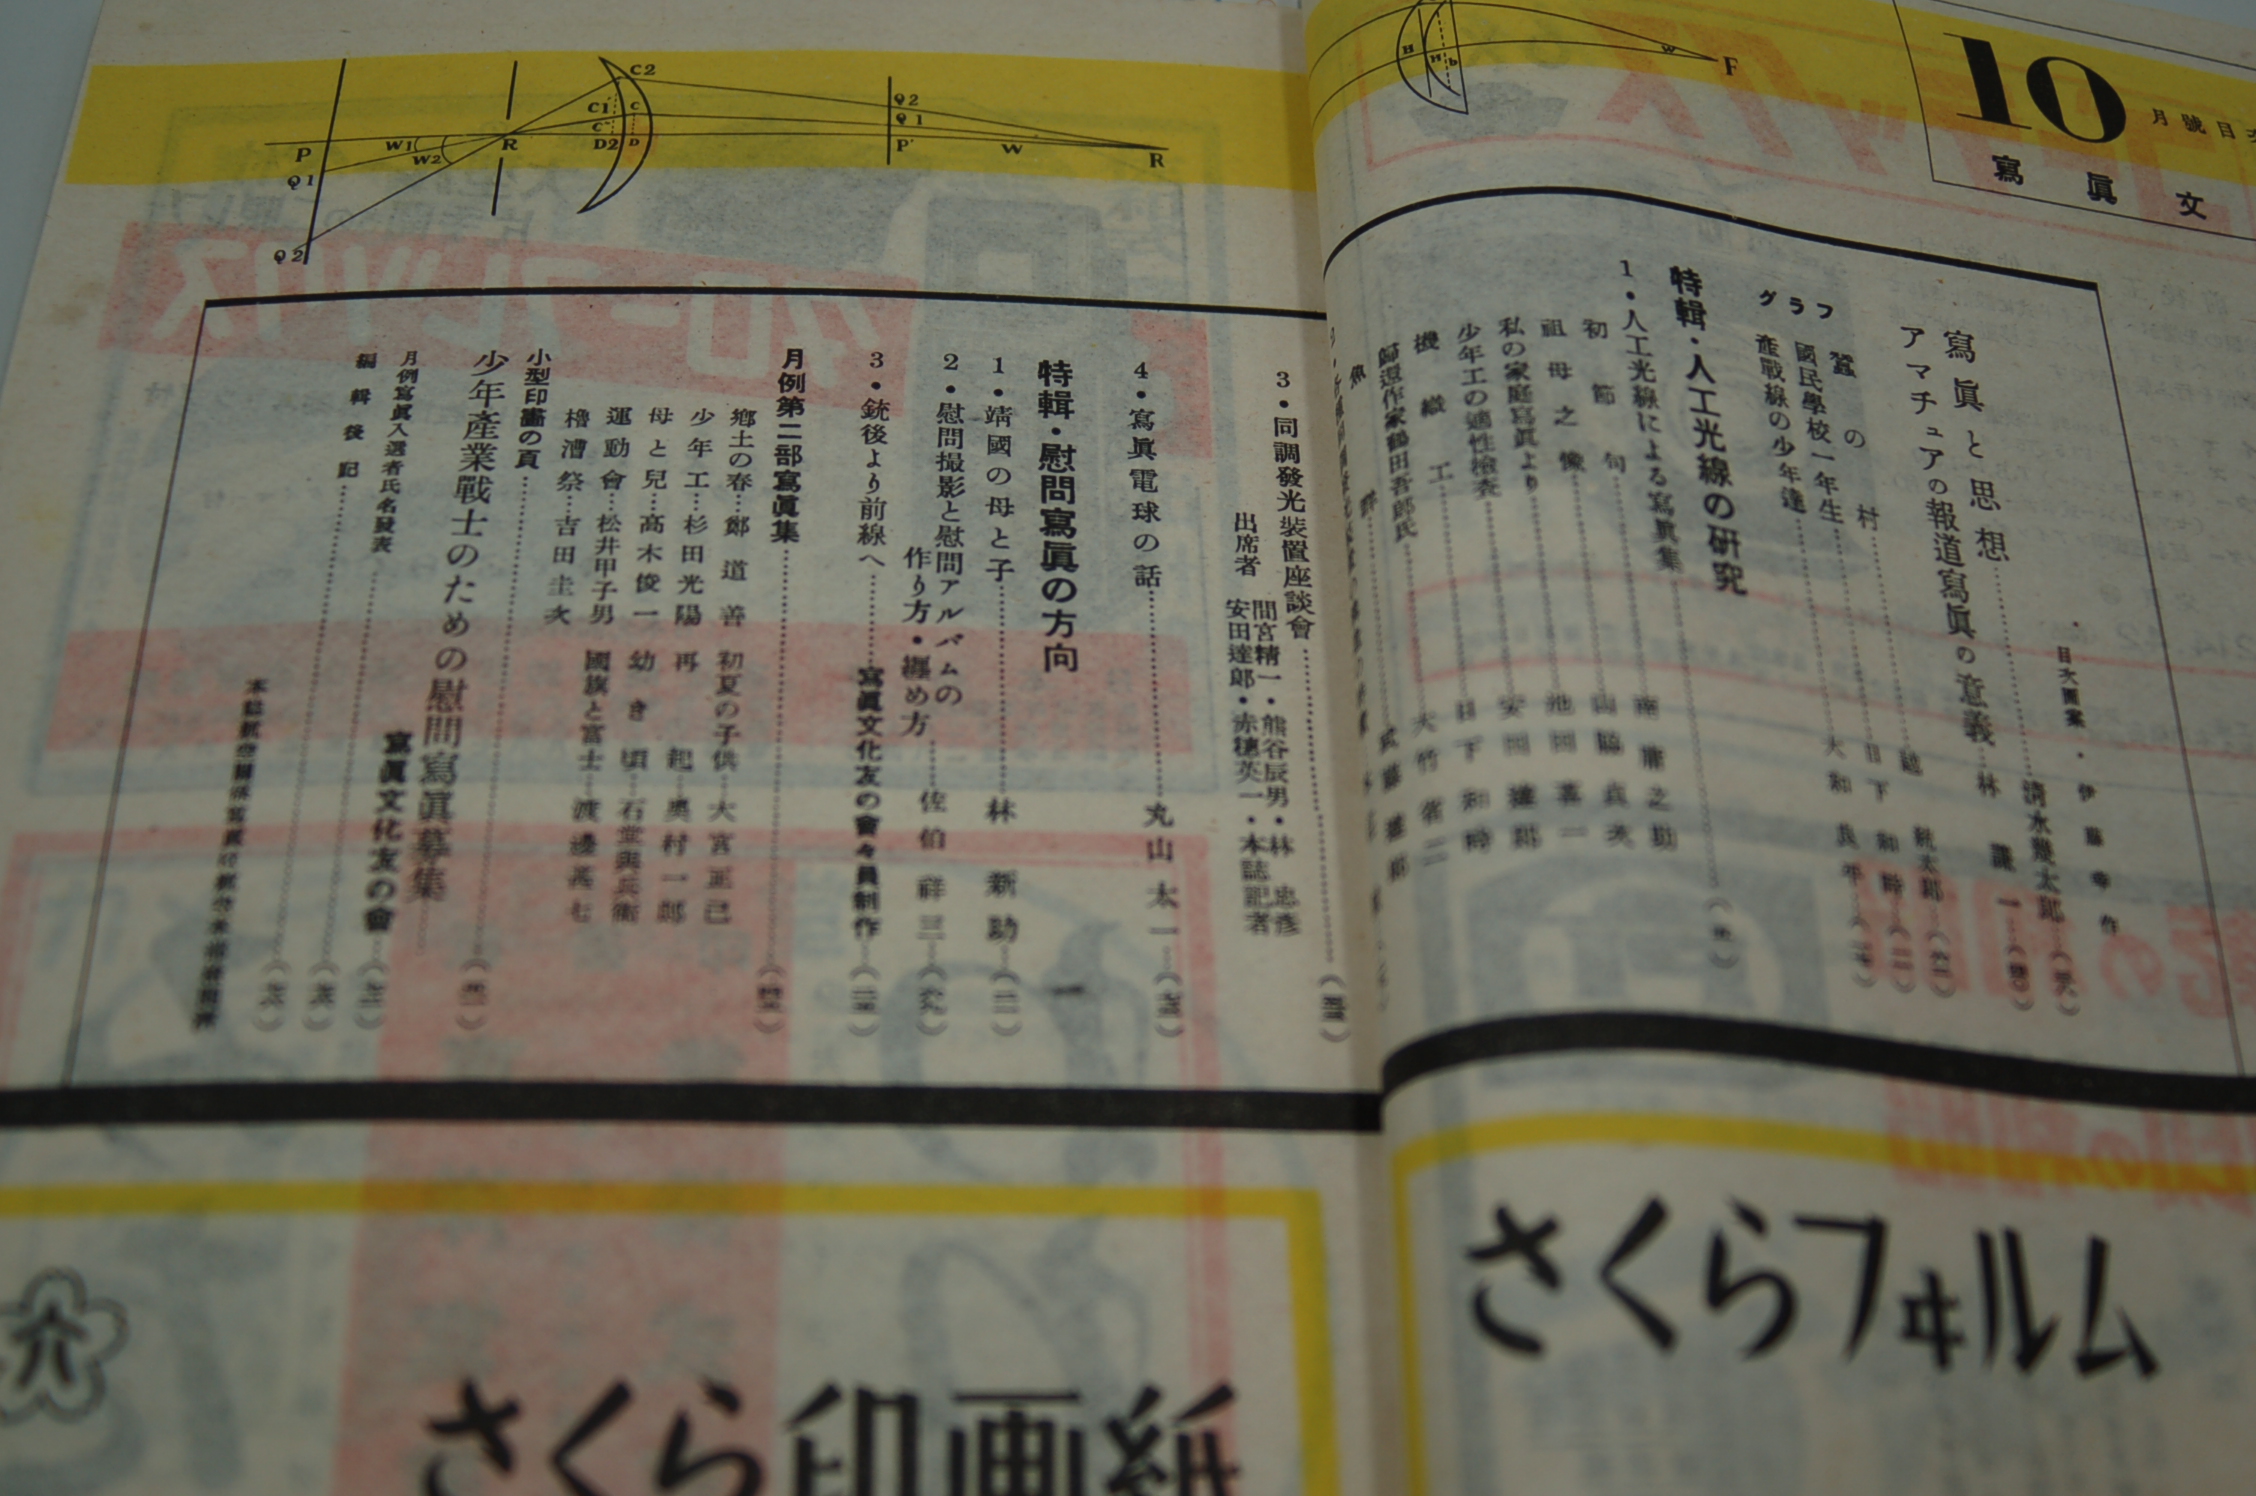 10
月號目次
寫眞文
目次圖案・伊藤幸作
寫眞と思想……清水幾太郎
アマチュアの報道寫眞の意義…林謙一
グラフ
蠶の村
國民學校一年生……日下和時
產戰線の少年達……大和良平
特輯・人工光線の研究
1・人工光線による寫眞集
初節句……山脇貞次
祖母之像……池田喜一
私の家庭寫眞より……安田雄郎
少年工の適性檢査……日下和時
機織工……大竹省二
歸還作家鶴田吾郎氏……武藤雄郎
3・同調發光裝置座談會
出席者 間宮精一・熊谷辰男・林忠彦
安田達郎・赤穗英一・本誌記者
4・寫眞電球の話……丸山太一
特輯・慰問寫眞の方向
1・靖國の母と子……林新助…(二一)
2・慰問撮影と慰問アルバムの
作り方・纏め方……佐伯祥三…(六九)
3・銃後より前線へ……寫眞文化友の會々員制作
月例第二部寫眞集
鄕土の春…鄭道善 初夏の子供…大宮正己
少年工…杉田光陽 再起…奧村一郎
母と兒…高木俊一 幼き頃…石堂與兵衞
運動會…松井甲子男 國旗と富士…渡邊甚七
櫓漕祭…吉田圭次
小型印畵の頁
少年產業戰士のための慰問寫眞募集
寫眞文化友の會
月例寫眞入選者氏名發表
編輯後記
C2
C1
C
C'
D2
D
Q2
Q1
P'
P
W1
W2
R
W
R
Q1
Q2
H
H
b
w
F
さくらフヰルム
さくら印画紙